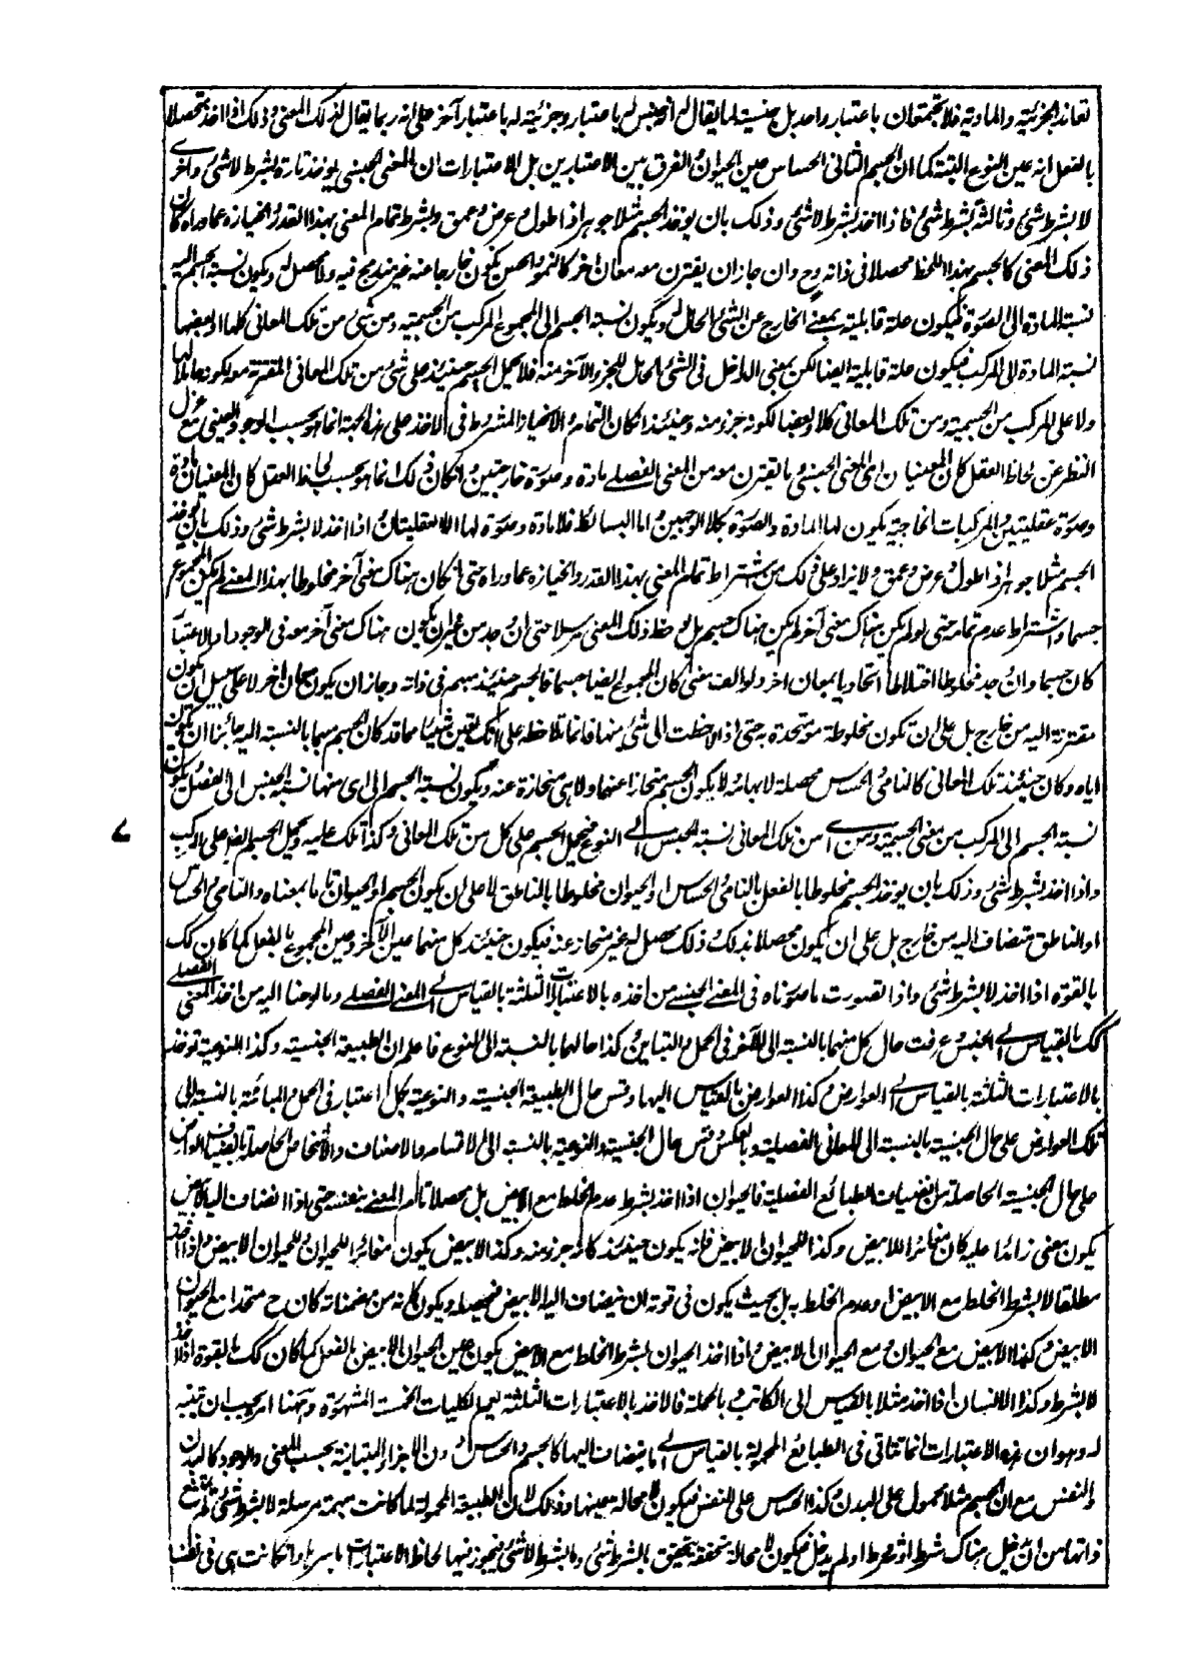 تعاند الجزئية والمادية فلا يجتمعان باعتبار واحد بل جنسية لما يقال له انه جنس له باعتبار وجزئية له باعتبار آخر على انه ربما يقال لذلك المعنى وذلك اذا اخذ متحصلا
بالفعل انه عين النوع البتة كما ان الجسم الثانى الحساس عين الحيوان والفرق بين الاعتبارين بل الاعتبارات ان المعنى الجنسى يوخذ تارة بشرط لا شئ واخرى
لا بشرط شئ وثالثة بشرط شئ فاذا اخذ بشرط لا شئ وذلك بان يوخذ الجسم مثلا جوهرا ذا طول وعرض وعمق وبشرط تمام المعنى بهذا القدر وانحيازه عما وراه كان
ذلك المعنى كالجسم بهذا اللحظ محصلا فى ذاته وح وان جاز ان يقترن معه معان اخر كالنمو والحس يكون خارجا عنه غير مندمج فيه ولا محصل له ويكون نسبة الجسم اليه
نسبة المادة الى الصورة فيكون علة قابلية بمعنى الخارج عن الشئ الحال له ويكون نسبة الجسم الى المجموع المركب من الجسمية ومن شئ من تلك المعانى كلها او بعضها
نسبة المادة الى المركب فيكون علة قابلية ايضا لكن بمعنى الداخل فى الشئ الحامل للجزء الآخر منه فلا يحمل الجسم حينئذ على شئ من تلك المعانى المقترنة معه لكونه حاملا لها
ولا على المركب من الجسمية ومن تلك المعانى كلا وبعضا لكونه جزء منه وحينئذ ان كان التمام والانحياز المشروط فى الاخذ على هذه الجهة انما هو بحسب الوجود العينى مع عزل
النظر عن لحاظ العقل كان المعنيان اى المعنى الجنسى وما يقترن معه من المعنى الفصلى مادة وصورة خارجيتين وان كان ذلك انما هو بحسب لحاظ العقل كان المعنيان مادة
وصورة عقليتين والمركبات الخارجية يكون لها المادة والصورة بكلا الوجهين واما البسائط فلا مادة وصورة لها الا العقليتان واذا اخذ لا بشرط شئ وذلك بان يوخذ
الجسم مثلا جوهرا ذا طول وعرض وعمق ولا يزاد على ذلك من اشتراط تمام المعنى بهذا القدر وانحيازه عما وراه حتى ان كان هناك معنى آخر مخلوطا بهذا المعنى لم يكن المجموع
جسما واشتراط عدم تمامه حتى لو لم يكن هناك معنى آخر لم يكن هناك جسم بل يوخذ ذلك المعنى مرسلا حتى ان وجد من غير ان يكون هناك معنى آخر معه فى الوجود او الاعتبار
كان جسما وان وجد مخلوطا اختلاطا اتحاديا بمعان اخر ولو الف معنى كان المجموع ايضا جسما فالجسم حينئذ مبهم فى ذاته وجاز ان يكون معان اخر لا على سبيل ان يكون
مقترنة اليه من خارج بل على ان تكون مخلوطة متحدة به حتى اذا لاحظت الى شئ منها فانما تلاحظه على انك تعين شيئا ما قد كان الجسم مبهما بالنسبة اليه جائزا ان يكون
اياه وكان حينئذ تلك المعانى كالنامى والحس محصلة لابهامه لا يكون الجسم منحازا عنها ولا هى منحازة عنه ويكون نسبة الجسم الى اى منها نسبة الجنس الى الفصل ويكون
نسبة الجسم الى المركب من معنى الجسمية ومن اى من تلك المعانى نسبة الجنس الى النوع فيحمل الجسم على كل من تلك المعانى وكذا تلك عليه ويحمل الجسم ايضا على المركب
واذا اخذ بشرط شئ وذلك بان يوخذ الجسم مخلوطا بالفعل بالنامى والحساس او الحيوان مخلوطا بالناطق لا على ان يكون الجسم او الحيوان تاما بمعناه والنامى والحساس
او الناطق منضاف اليه من خارج بل على ان يكون محصلا بذلك وذلك محصل له غير منحاز عنه فيكون حينئذ كل منهما عين الآخر وعين المجموع بالفعل كما كان كك
بالقوة اذا اخذ لا بشرط شئ واذا تصورت ما صورناه فى المعنى الجنسى من اخذه بالاعتبارات الثلثة بالقياس الى المعنى الفصلى وما لوحنا اليه من اخذ المعنى الفصلى
كك بالقياس الى الجنس عرفت حال كل منهما بالنسبة الى الآخر فى الحمل والتباين وكذا حالهما بالنسبة الى النوع فاعلم ان الطبيعة الجنسية وكذا النوعية توخذ
بالاعتبارات الثلثة بالقياس الى العوارض وكذا العوارض بالقياس اليها وقس حال الطبيعة الجنسية والنوعية بكل اعتبار فى الحمل والمباينة بالنسبة الى
تلك العوارض على حال الجنسية بالنسبة الى المعانى الفصلية وبالعكس وقس حال الجنسية والنوعية بالنسبة الى الاقسام والاصناف والاشخاص الحاصلة بانضياف العوارض
على حال الجنسية الحاصلة من انضياف الطبائع الفصلية فالحيوان اذا اخذ بشرط عدم الخلط مع الابيض بل محصلا تام المعنى بنفسه حتى اذا انضاف اليه الابيض
يكون معنى زائدا عليه كان مغائرا للابيض وكذا للحيوان الابيض فانه يكون حينئذ كانه جزء منه وكذا الابيض يكون مغائرا للحيوان وللحيوان الابيض واذا اخذ
مطلقا لا بشرط الخلط مع الابيض وعدم الخلط به بل بحيث يكون فى قوته ان ينضاف اليه الابيض فيحصله ويكون كانه من مضمناته كان ح متحدا مع الحيوان
الابيض وكذا الابيض مع الحيوان ومع الحيوان الابيض واذا اخذ الحيوان بشرط الخلط مع الابيض يكون عين الحيوان الابيض بالفعل كما كان كك بالقوة اذا اخذ
لا بشرط وكذا الانسان اذا اخذ مثلا بالقياس الى الكاتب وبالجملة فالاخذ بالاعتبارات الثلثة يعم الكليات الخمس المشهورة وههنا امر يجب ان يتنبه
له وهو ان هذه الاعتبارات انما تتاتى فى الطبائع المحمولة بالقياس الى ما ينضاف اليها كالجسم والحس دون الاجزاء المتباينة بحسب المعنى والوجود كالبدن
والنفس مع ان الجسم مثلا محمول على البدن وكذا الحساس على النفس فيكون لا محالة عينها وذلك لان الطبيعة المحمولة لما كانت مبهمة مرسلة لا بشرط شئ لم يمتنع
ذاتها من ان دخل هناك شرط اثر مخرط او لم يدخل فيكون لا محالة متحققة بتحقق بالشرط شئ وبالشرط لا شئ فيجوز فيها لحاظ الاعتبارات باسرها وان كانت هى فى نفسها
ے